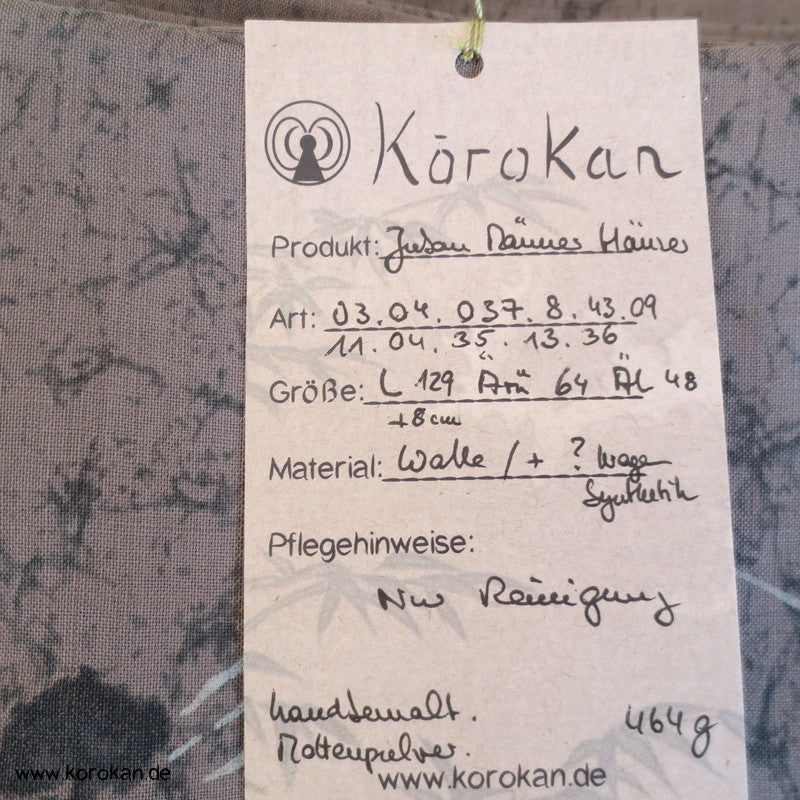 Körokan
Produkt: Juban Männer Häuser
Art: 03.04.037.8.43.09
11.04.35.13.36
Größe: L 129 Ärü 64 ÄL 48
+8 cm
Material: Wolle / + ?
Synthetik
Pflegehinweise:
Nur Reinigung
handbemalt.
Mottenpulver.
464 g
www.korokan.de
www.korokan.de